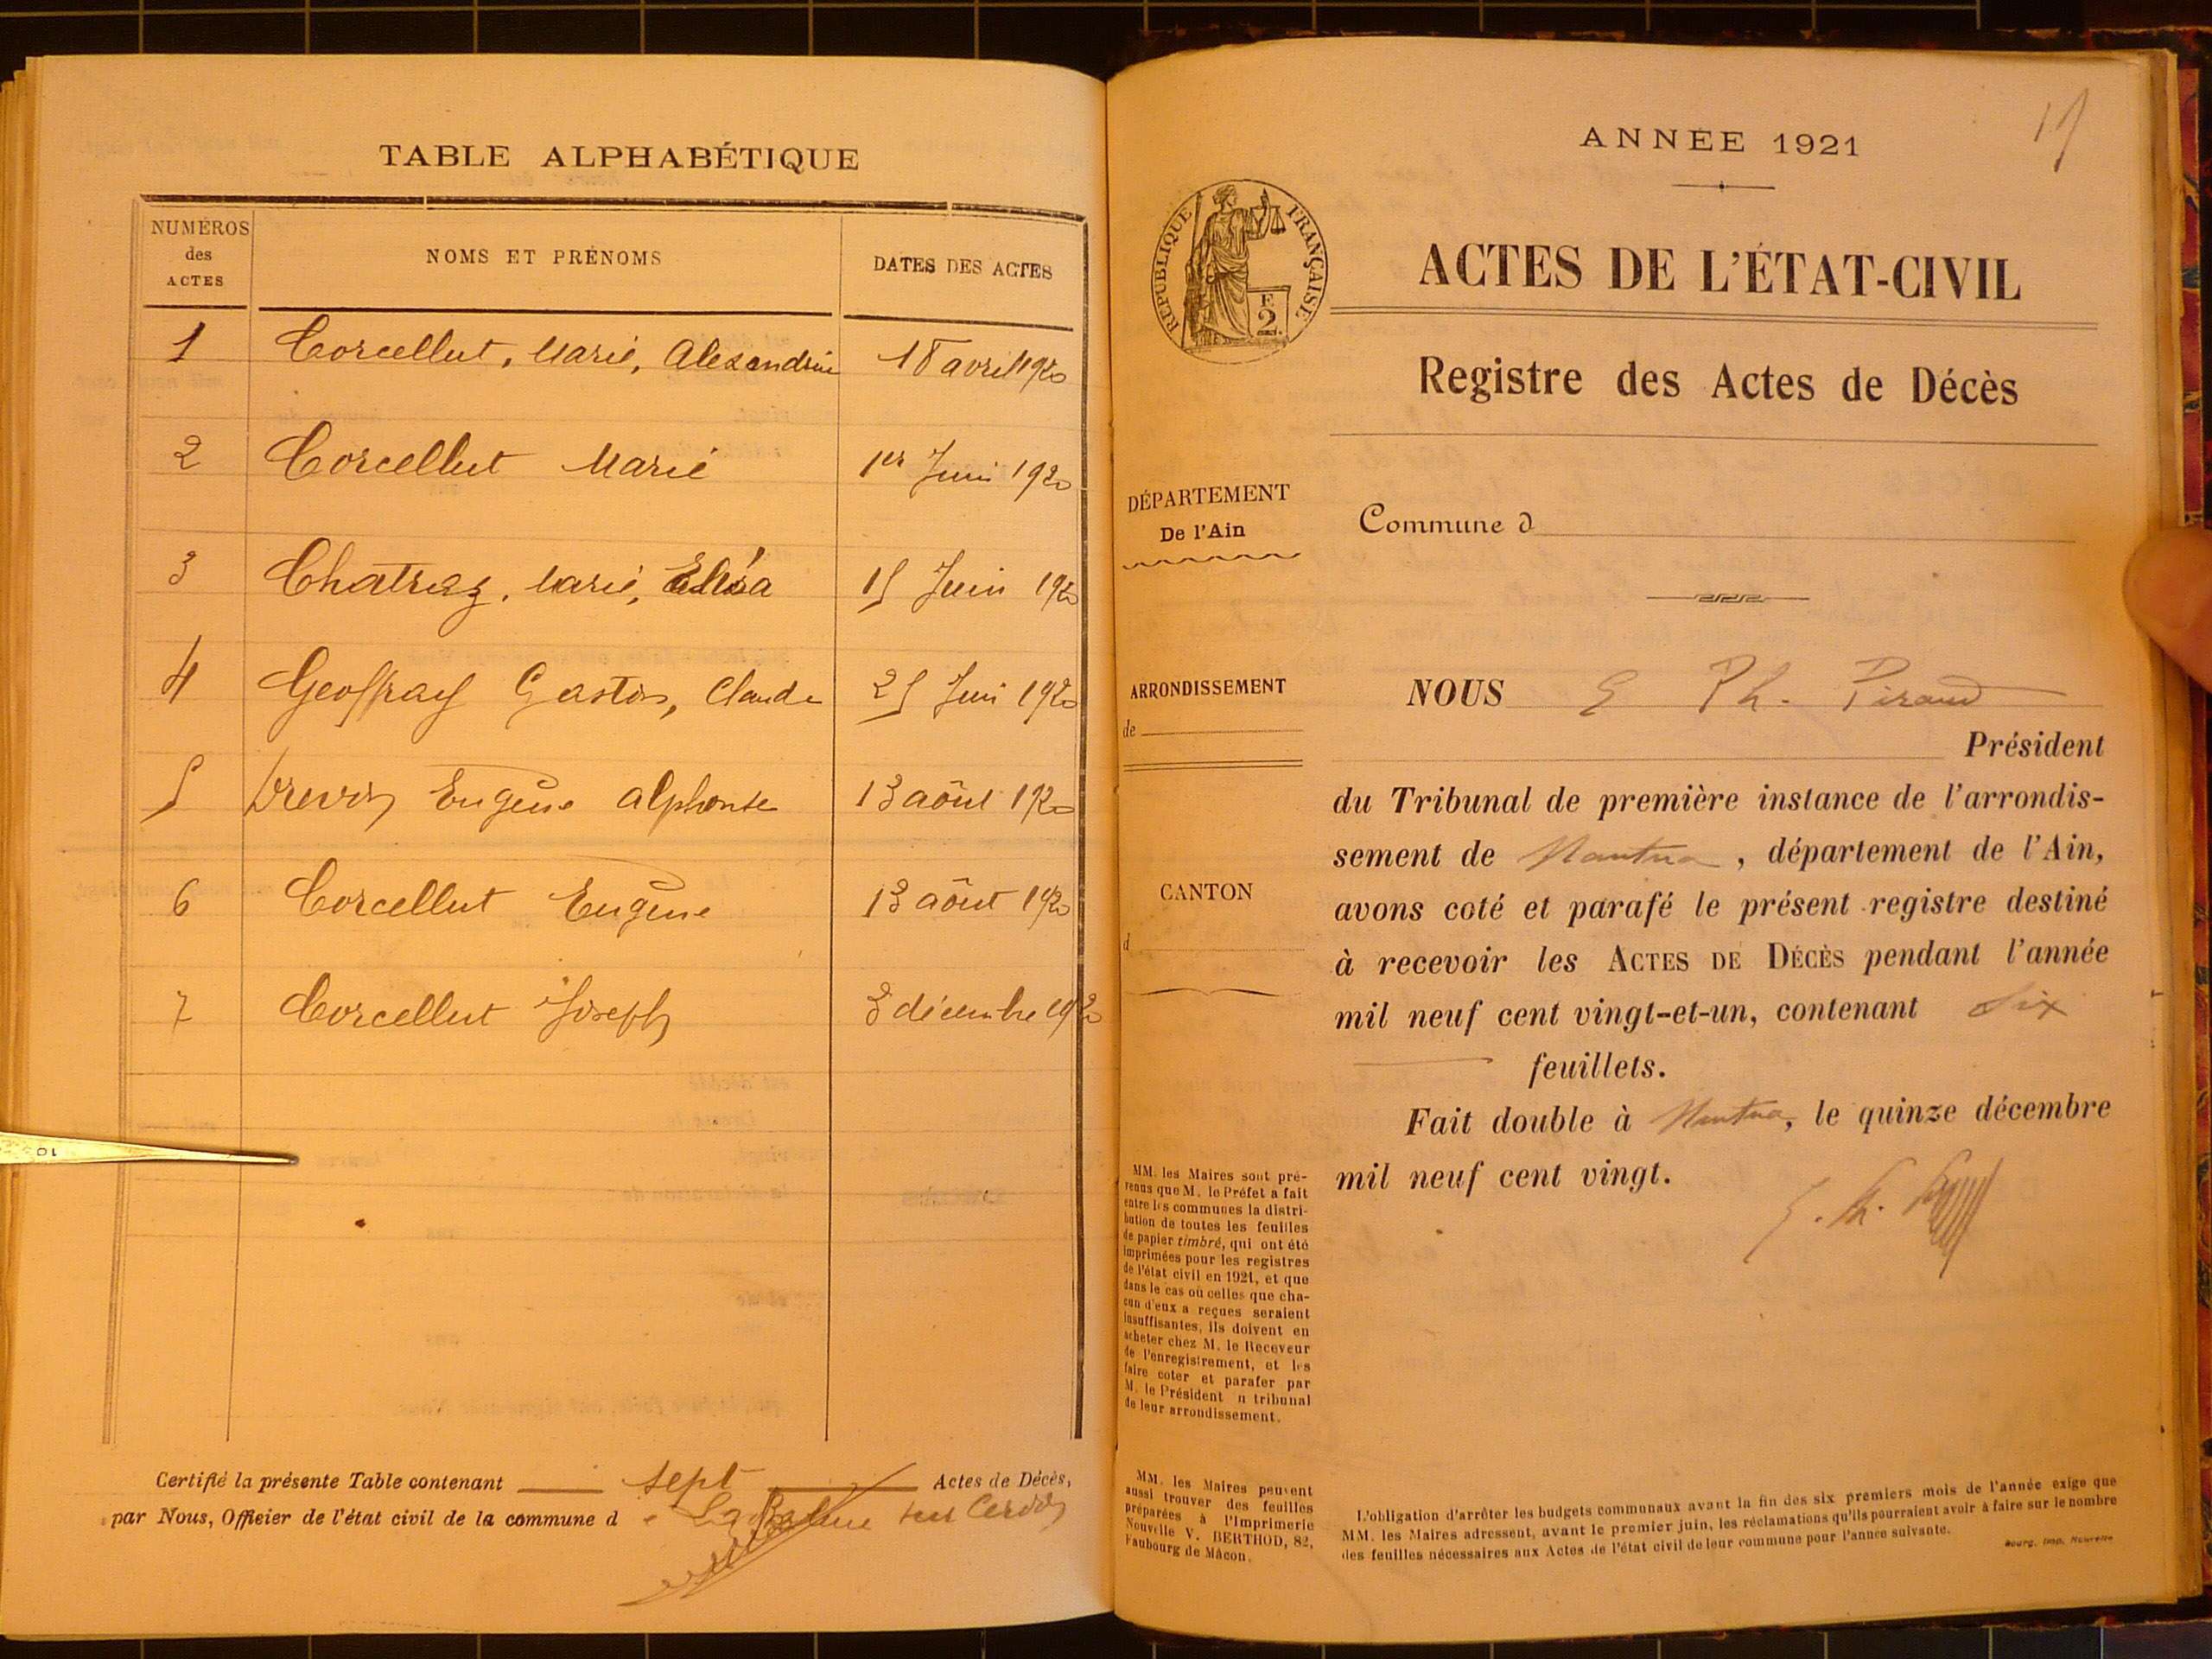 TABLE ALPHABÉTIQUE
NUMÉROS des ACTES
NOMS ET PRÉNOMS
DATES DES ACTES
1 Corcellut, Marie, Alexandrine 18 avril 1920
2 Corcellut Marie 1er Juin 1920
3 Chatraz, Marie, Élisa 15 Juin 1920
4 Geoffray Gaston, Claude 25 Juin 1920
5 Drevon Eugène Alphonse 13 aôut 1920
6 Corcellut Eugène 13 aôut 1920
7 Corcellut Joseph 3 décembre 1920
Certifié la présente Table contenant sept Actes de Décès,
par Nous, Officier de l'état civil de la commune de La Balme sur Cerdon
10
17
ANNÉE 1921
RÉPUBLIQUE FRANÇAISE
E
2
ACTES DE L'ÉTAT-CIVIL
Registre des Actes de Décès
DÉPARTEMENT
De l'Ain
Commune d
ARRONDISSEMENT
de
CANTON
d
NOUS E Ph. Piraud
Président
du Tribunal de première instance de l'arrondis-
sement de Nantua, département de l'Ain,
avons coté et parafé le présent registre destiné
à recevoir les ACTES DE DÉCÈS pendant l'année
mil neuf cent vingt-et-un, contenant six
feuillets.
Fait double à Nantua, le quinze décembre
mil neuf cent vingt.
MM. les Maires sont pré-
venus que M. le Préfet a fait
entre les communes la distri-
bution de toutes les feuilles
de papier timbré, qui ont été
imprimées pour les registres
de l'état civil en 1921, et que
dans le cas où celles que cha-
cun d'eux a reçues seraient
insuffisantes, ils doivent en
acheter chez M. le Receveur
de l'enregistrement, et les
faire coter et parafer par
M. le Président u tribunal
de leur arrondissement.
MM. les Maires peuvent
aussi trouver des feuilles
préparées à l'Imprimerie
Nouvelle V. BERTHOD, 82,
Faubourg de Mâcon.
L'obligation d'arrêter les budgets communaux avant la fin des six premiers mois de l'année exige que
MM. les Maires adressent, avant le premier juin, les réclamations qu'ils pourraient avoir à faire sur le nombre
des feuilles nécessaires aux Actes de l'état civil de leur commune pour l'année suivante.
Bourg. Imp. Nouvelle